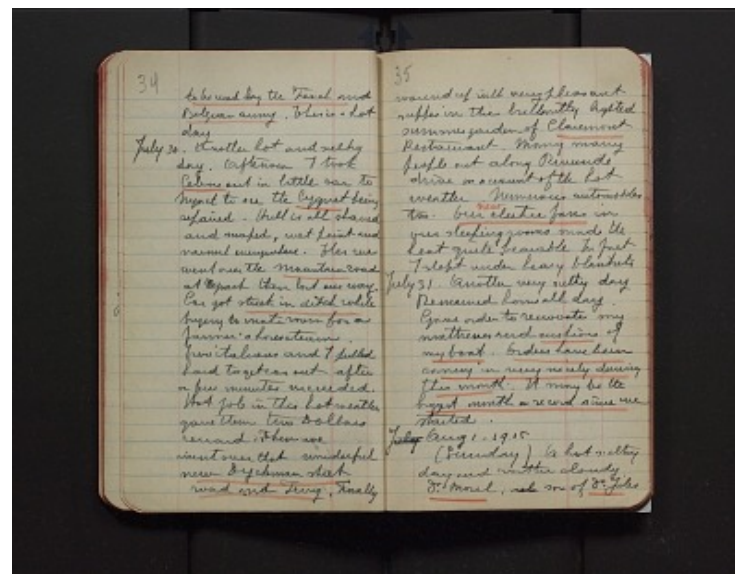 34
to be used by the French and
Belgian army. This is a hot
day
July 30. Another hot and sultry
day. Afternoon I took
Celine out in little car to
Nyack to see the Cygnet being
repaired. Hull is all shaved
and scraped, wet paint and
varnish everywhere. Then we
went over the mountain road
at Nyack then lost our way.
Car got stuck in ditch while
trying to make room for a
farmer's horse team.
Few italians and I pulled
hard to get car out after
a few minutes succeeded.
Hot job in this hot weather
gave them two Dollars
reward. Then we
went over that wonderful
new Dyckman street
road and ferry, Finally
35
wound up with very pleasant
supper in the brilliantly lighted
summer garden of Claremont
Restaurant. Many many
people out along Riverside
drive on account of the hot
weather. Numerous automobiles
too. Our new electric fans in
our sleeping rooms made the
heat quite bearable. In fact
I slept under heavy blankets
July 31. Another very sultry day
Remained home all day.
Gave order to renovate my
mattresses and cushions of
my boat. Orders have been
coming in very nicely during
this month. It may be the
biggest month on record since we
started.
July Aug 1. 1915
(Sunday) A hot sultry
day and rather cloudy
Dr. Morel, son of Dr. Jules